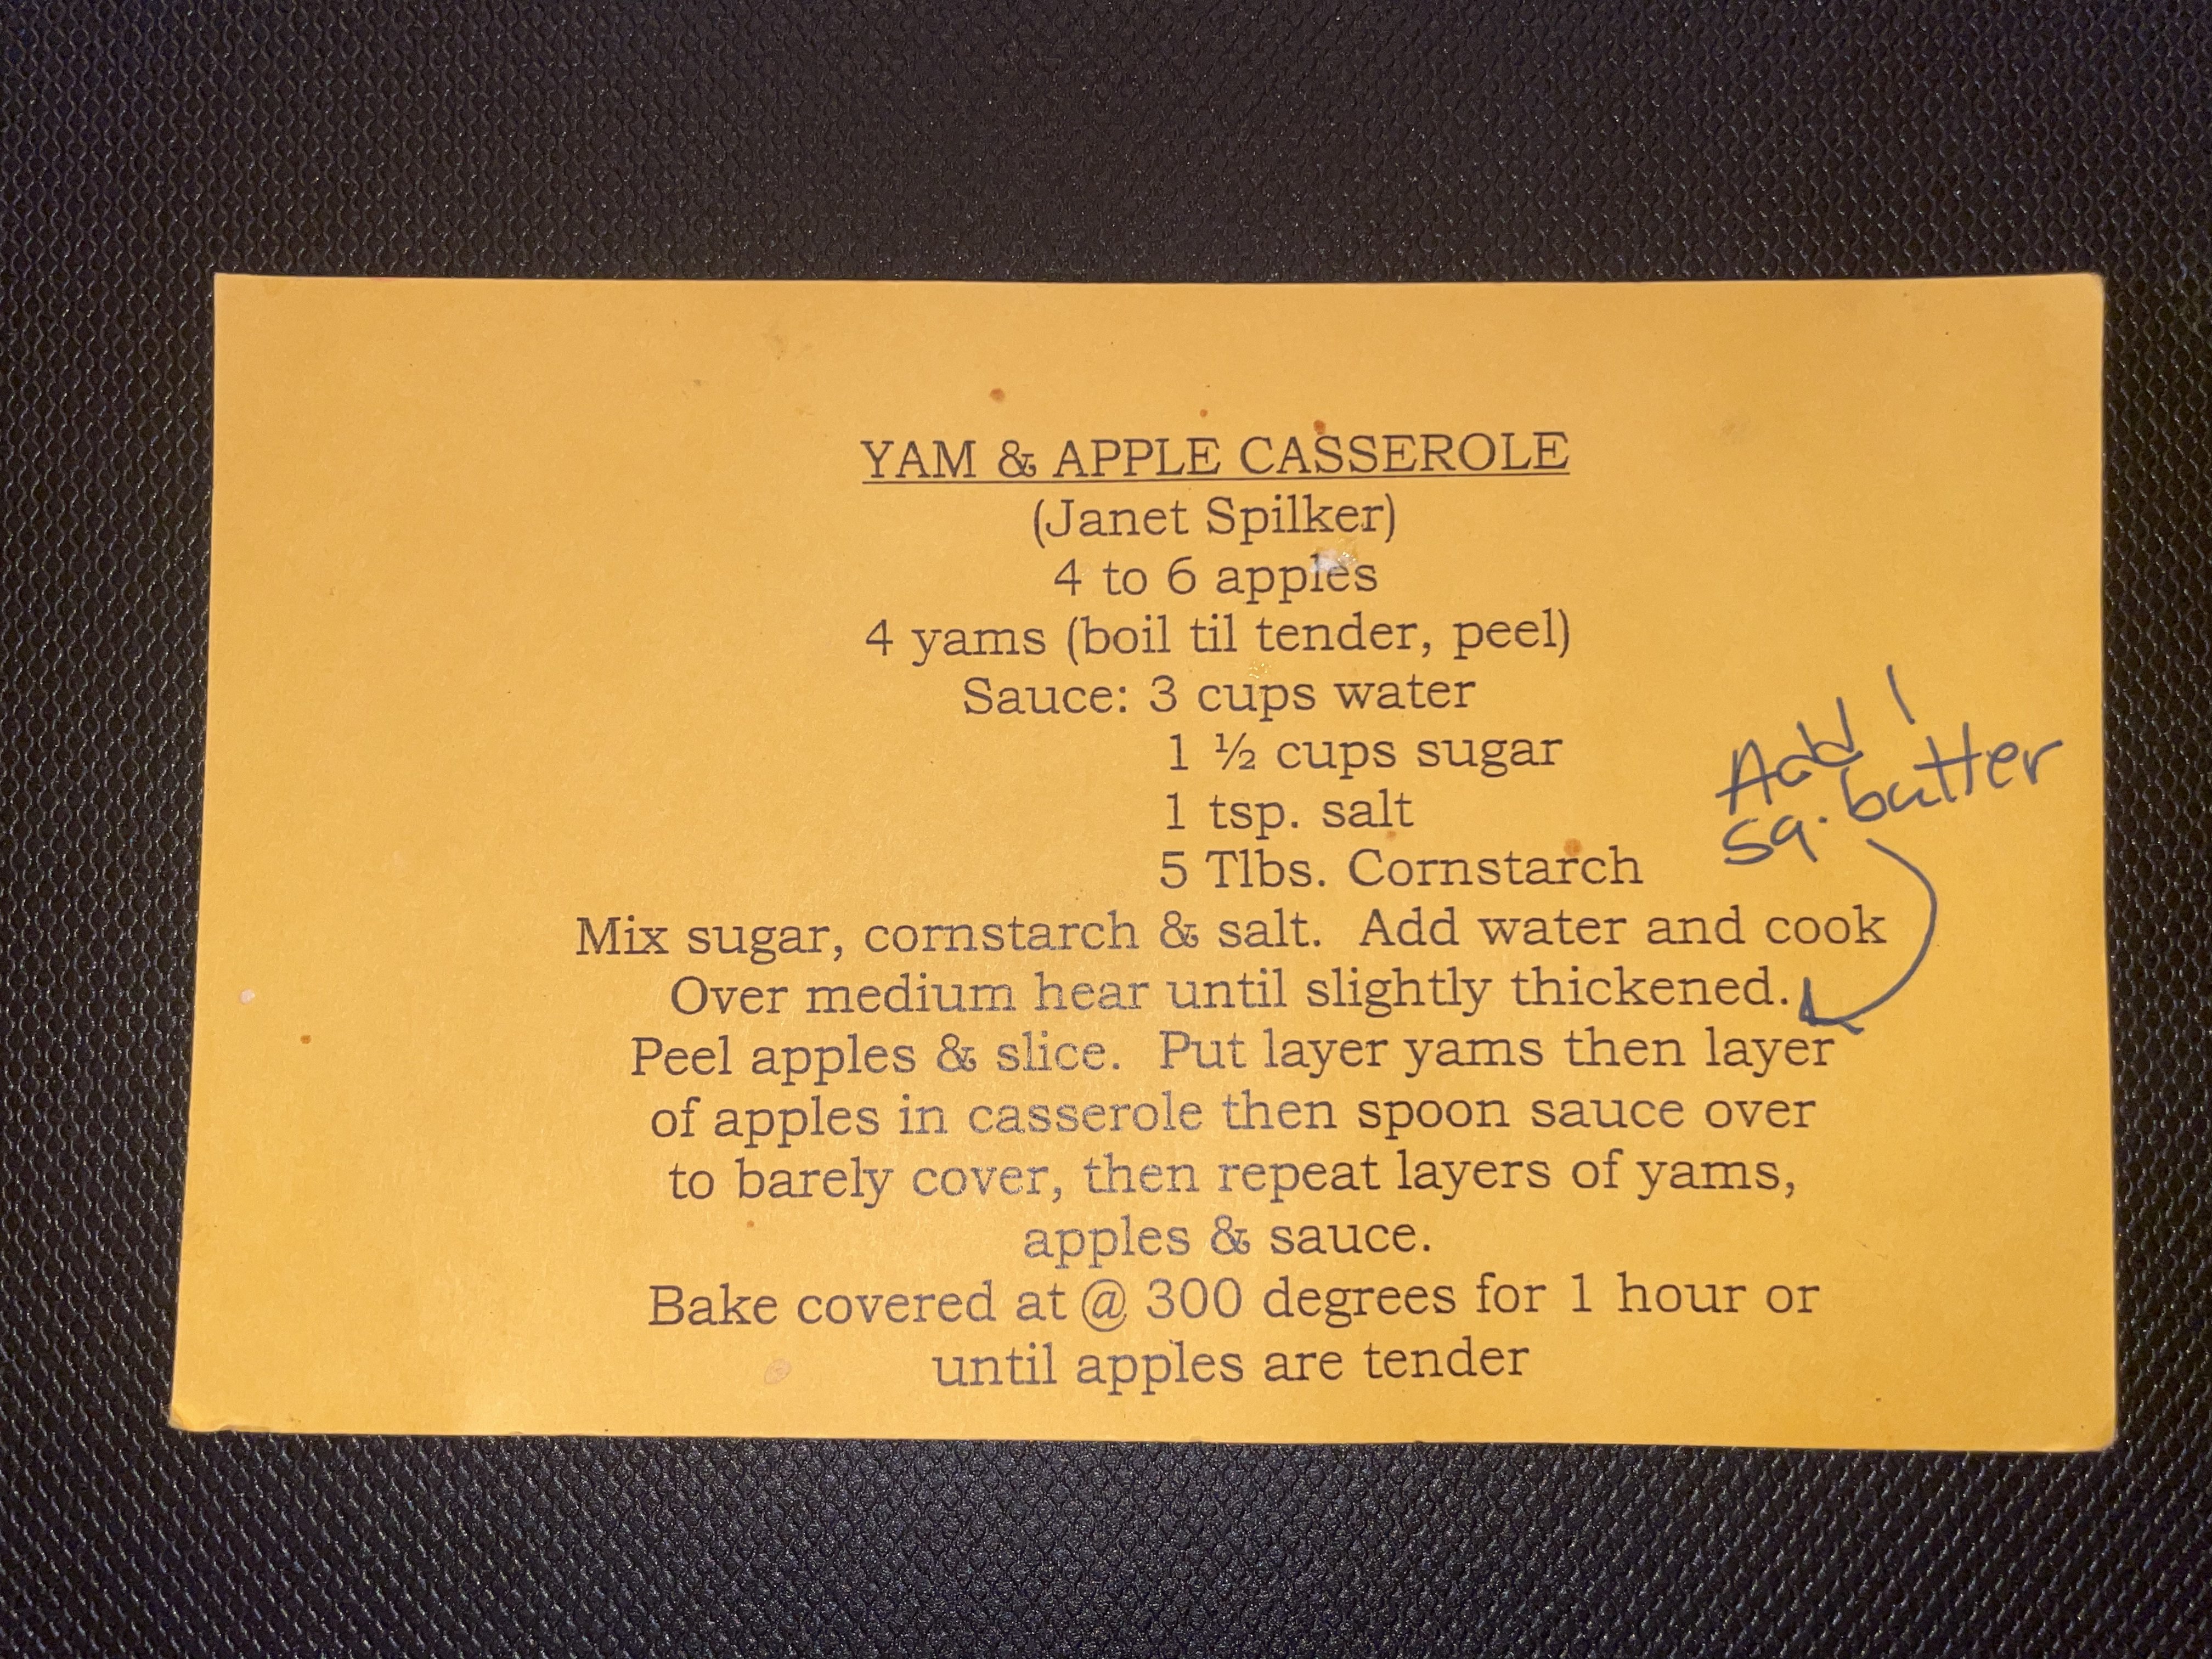 YAM & APPLE CASSEROLE
(Janet Spilker)
4 to 6 apples
4 yams (boil til tender, peel)
Sauce: 3 cups water
1 ½ cups sugar
1 tsp. salt
5 Tlbs. Cornstarch
Add 1
sq. butter
Mix sugar, cornstarch & salt. Add water and cook
Over medium hear until slightly thickened.
Peel apples & slice. Put layer yams then layer
of apples in casserole then spoon sauce over
to barely cover, then repeat layers of yams,
apples & sauce.
Bake covered at @ 300 degrees for 1 hour or
until apples are tender